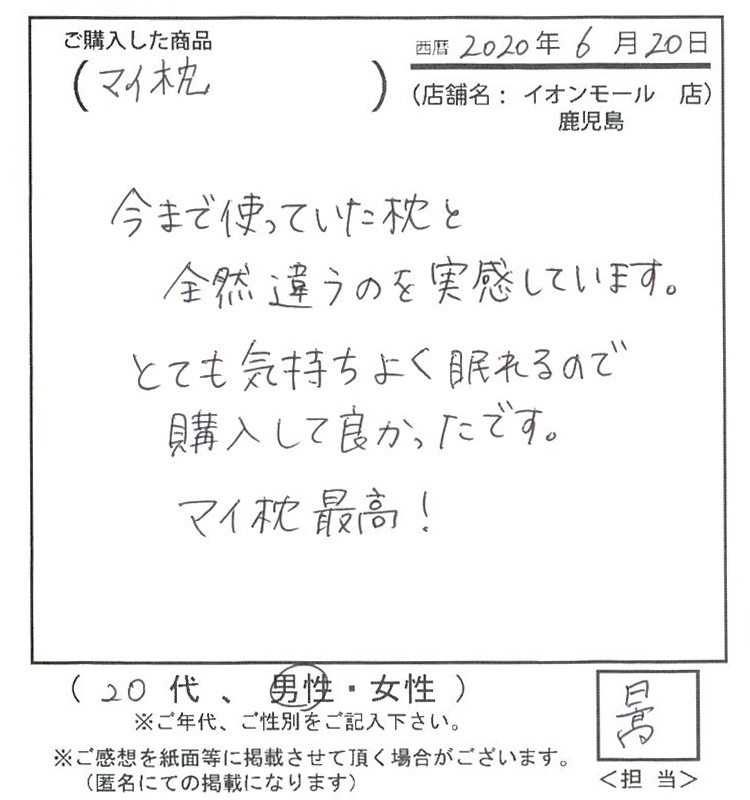 ご購入した商品
(マイ枕)
西暦 2020年 6月20日
(店舗名: イオンモール 店)
鹿児島
今まで使っていた枕と
全然違うのを実感しています。
とても気持ちよく眠れるので
購入して良かったです。
マイ枕最高!
(20代、男性・女性)
※ご年代、ご性別をご記入下さい。
※ご感想を紙面等に掲載させて頂く場合がございます。
(匿名にての掲載になります)
<担当>